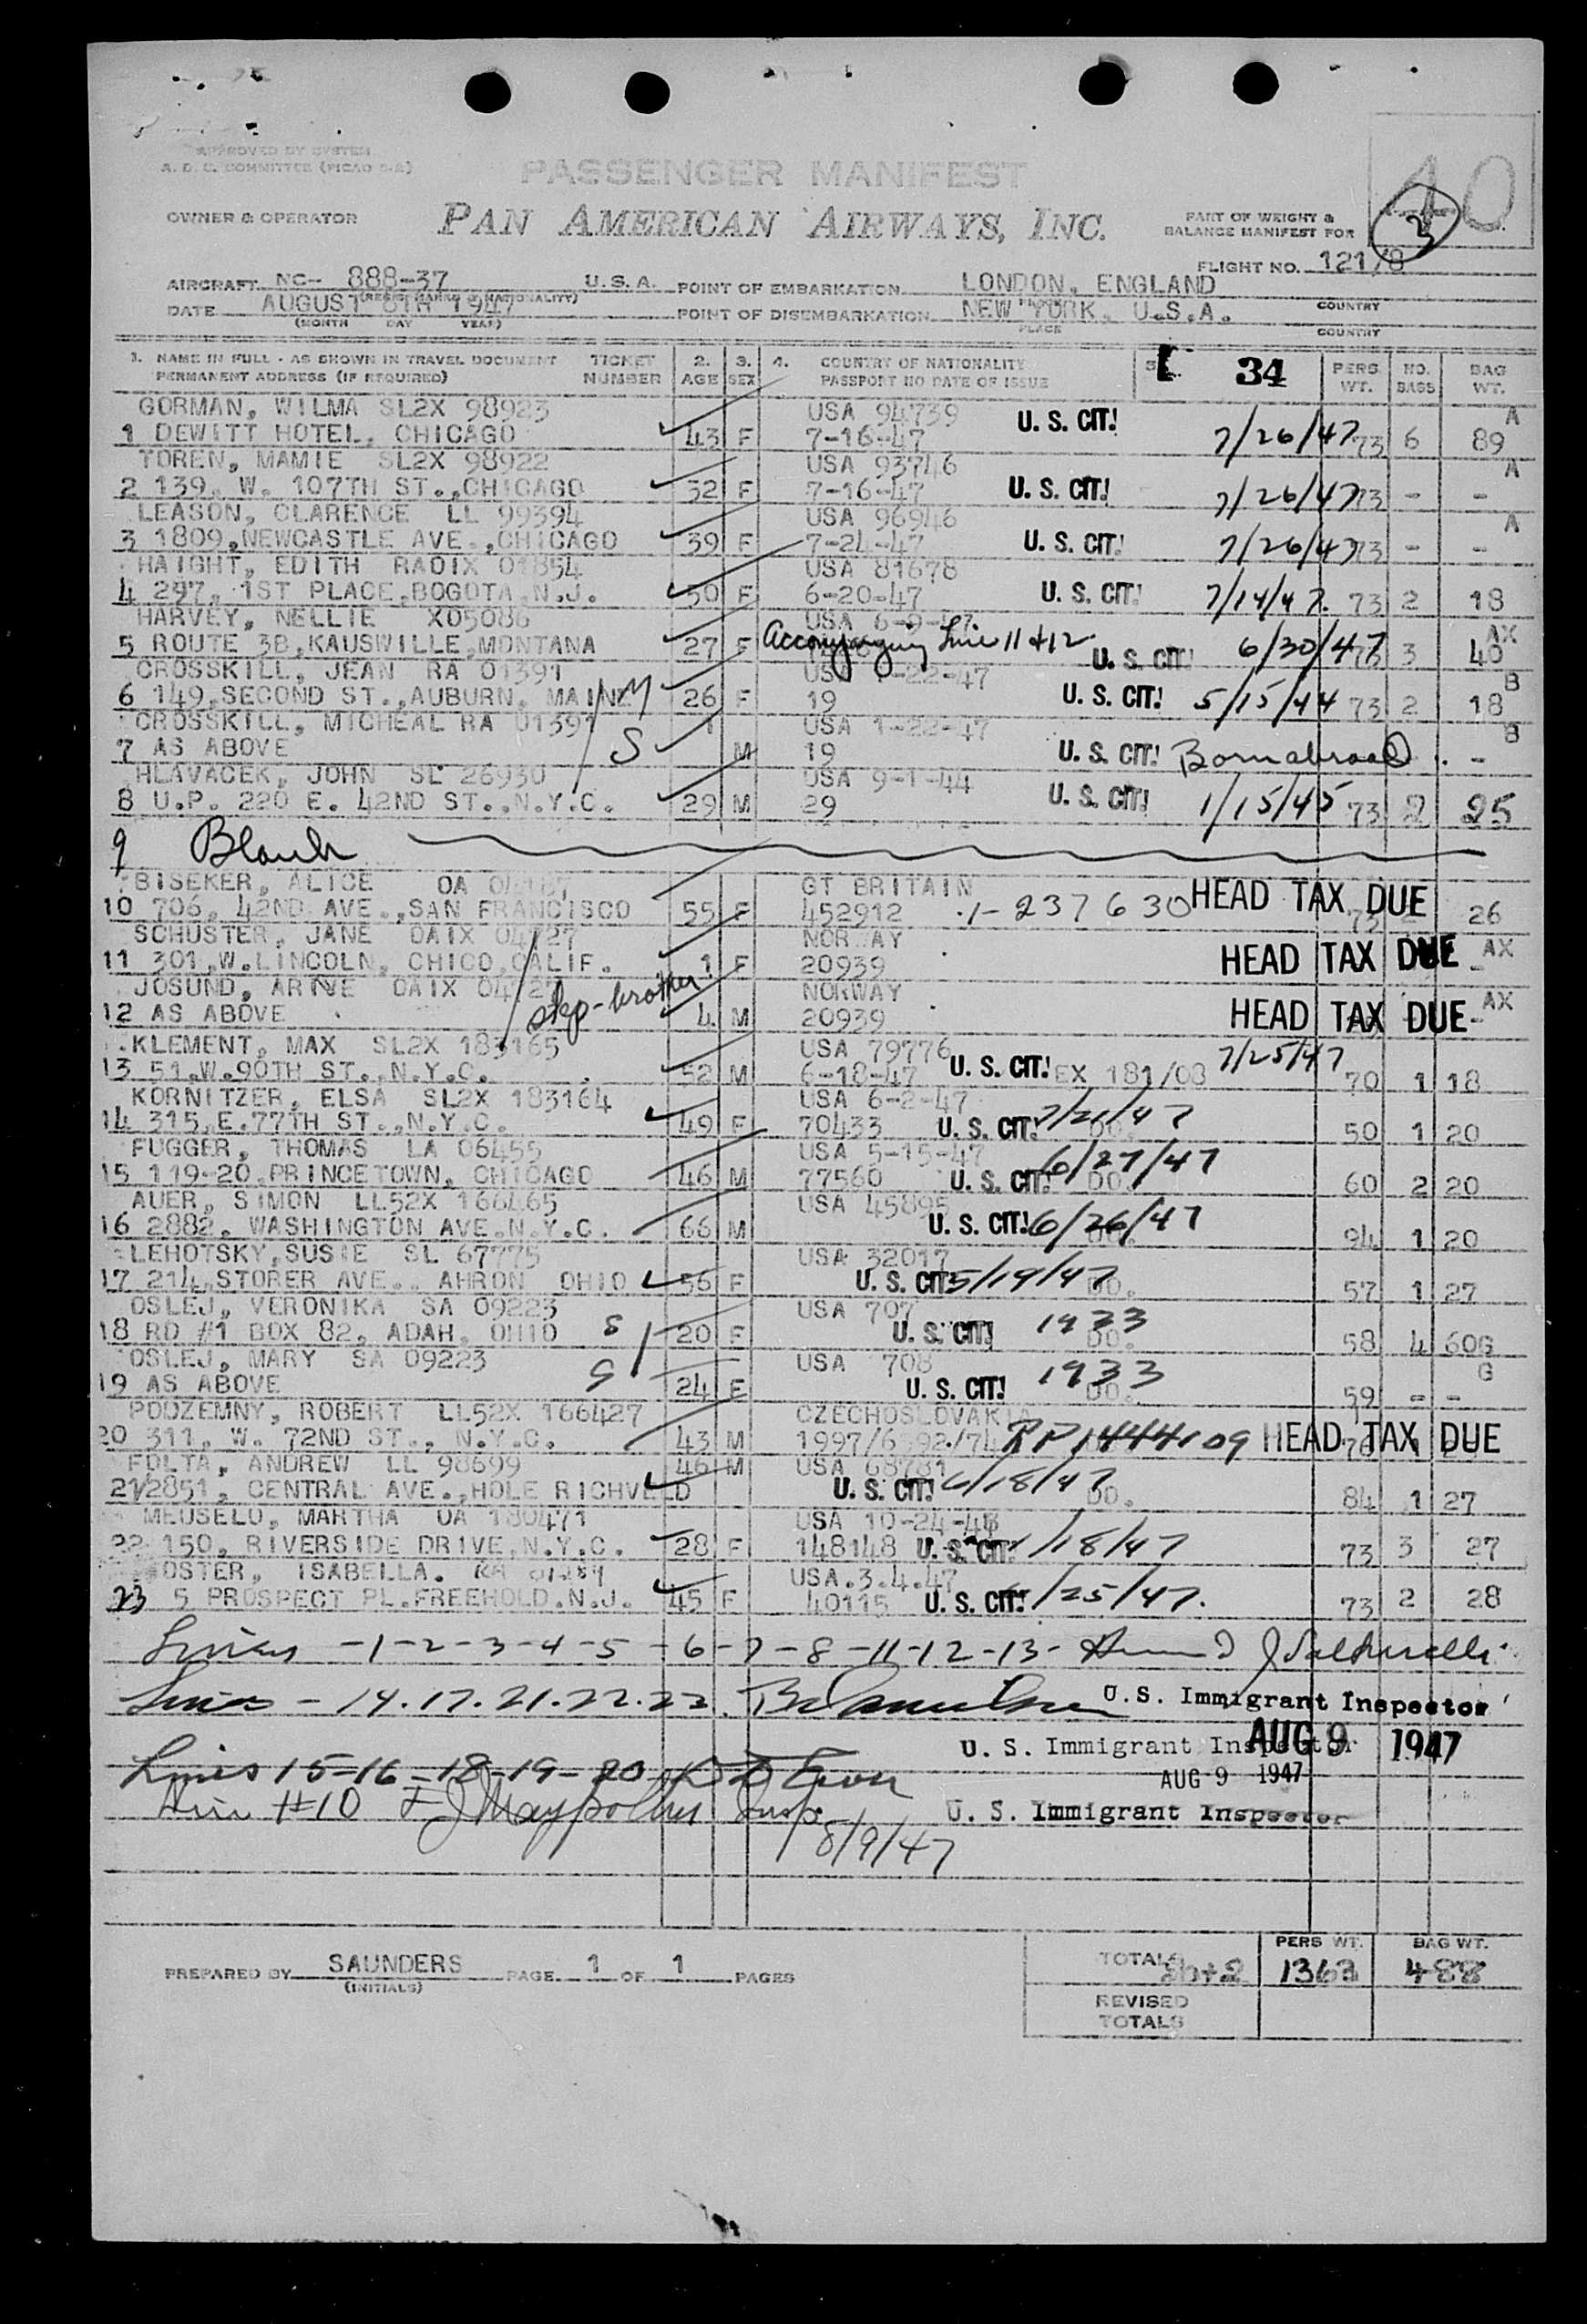 APPROVED BY SYSTEM
A. D. C. COMMITTEE (PICAO 2-2)
PASSENGER MANIFEST
40
OWNER & OPERATOR PAN AMERICAN AIRWAYS, INC. PART OF WEIGHT &
BALANCE MANIFEST FOR
FLIGHT NO. 121/8
AIRCRAFT NC- 888-37 U.S.A. POINT OF EMBARKATION LONDON, ENGLAND
(REGIS. MARKS & NATIONALITY)
DATE AUGUST 8TH 1947 POINT OF DISEMBARKATION NEW YORK, U.S.A. COUNTRY
(MONTH DAY YEAR) PLACE COUNTRY
1. NAME IN FULL - AS SHOWN IN TRAVEL DOCUMENT TICKET 2. 3. 4. COUNTRY OF NATIONALITY 34 PERS NO. BAG
PERMANENT ADDRESS (IF REQUIRED) NUMBER AGE SEX PASSPORT NO DATE OF ISSUE WT. BAGS WT.
GORMAN, WILMA SL2X 98923 USA 94739 U. S. CIT! A
1 DEWITT HOTEL, CHICAGO 43 F 7-16-47 7/26/47 73 6 89
TOREN, MAMIE SL2X 98922 USA 93746 A
2 139, W. 107TH ST.,CHICAGO 32 F 7-16-47 U. S. CIT! 7/26/47 73 - -
LEASON, CLARENCE LL 99394 USA 96946 A
3 1809,NEWCASTLE AVE.,CHICAGO 39 F 7-24-47 U. S. CIT! 7/26/47 73 - -
HAIGHT, EDITH RAOIX 01854 USA 81678
4 297, 1ST PLACE,BOGOTA,N.J. 50 F 6-20-47 U. S. CIT! 7/14/47. 73 2 18
HARVEY, NELLIE X05086 USA 6-9-47
5 ROUTE 3B,KAUSWILLE,MONTANA 27 F Accompanying Line 11 & 12 U. S. CIT! 6/30/47 73 3 40 AX
CROSSKILL, JEAN RA 01391 USA 1-22-47 B
6 149,SECOND ST.,AUBURN, MAINE M 26 F 19 U. S. CIT! 5/15/44 73 2 18
CROSSKILL, MICHEAL RA 01391 1 USA 1-22-47 B
7 AS ABOVE S M 19 U. S. CIT! Born abroad . -
HLAVACEK, JOHN SL 26930 USA 9-1-44
8 U.P. 220 E. 42ND ST.,N.Y.C. 29 M 29 U. S. CIT! 1/15/45 73 2 25
9 Blank
BISEKER, ALICE OA GT BRITAIN
10 706, 42ND AVE.,SAN FRANCISCO 55 F 452912 1-237630 HEAD TAX DUE 73 26
SCHUSTER, JANE OAIX 04727 NORWAY
11 301,W.LINCOLN, CHICO,CALIF. 1 F 20939 HEAD TAX DUE - AX
JOSUND, ARNE OAIX 04727 step-brother NORWAY
12 AS ABOVE 4 M 20939 HEAD TAX DUE - AX
KLEMENT, MAX SL2X 183165 USA 79776 7/25/47
13 51,W.90TH ST.,N.Y.C. 52 M 6-18-47 U. S. CIT! EX 181/08 70 1 18
KORNITZER, ELSA SL2X 183164 USA 6-2-47
14 315,E.77TH ST.,N.Y.C. 49 F 70433 U. S. CIT! 7/21/47 DO. 50 1 20
FUGGER, THOMAS LA 06455 USA 5-15-47
15 119-20,PRINCETOWN, CHICAGO 46 M 77560 U. S. CIT! 6/27/47 DO. 60 2 20
AUER, SIMON LL52X 166465 USA 45895
16 2882, WASHINGTON AVE.N.Y.C. 66 M U. S. CIT! 6/26/47 DO. 94 1 20
LEHOTSKY,SUSIE SL 67775 USA 32017
17 214,STORER AVE., AHRON OHIO 56 F U. S. CIT! 5/19/47 DO. 57 1 27
OSLEJ, VERONIKA SA 09223 USA 707
18 RD #1 BOX 82, ADAH, OHIO S 20 F U. S. CIT! 1933 DO. 58 4 60G
OSLEJ, MARY SA 09223 USA 708 G
19 AS ABOVE S 24 F U. S. CIT! 1933 DO. 59 - -
PODZEMNY, ROBERT LL52X 166427 CZECHOSLOVAKIA
20 311, W. 72ND ST., N.Y.C. 43 M 1997/6 92./74 RP 1444109 HEAD TAX DUE
FOLTA, ANDREW LL 98699 46 M USA 68781
21 12851, CENTRAL AVE.,HOLE RICHVELD U. S. CIT! 6/18/47 DO. 84 1 27
MEUSELO, MARTHA OA 180471 USA 10-24-46
22 150, RIVERSIDE DRIVE,N.Y.C. 28 F 148148 U. S. CIT! 1/18/47 73 3 27
OSTER, ISABELLA. RA 01284 USA.3.4.47
23 5 PROSPECT PL.FREEHOLD.N.J. 45 F 40115 U. S. CIT! /25/47. 73 2 28
Lines -1-2-3-4-5-6-7-8-11-12-13-
Lines - 14.17.21.22.23. U.S. Immigrant Inspector
U. S. Immigrant Inspector AUG 9 1947
Lines 15-16-18-19-20 AUG 9 1947
Line #10 Insp. U. S. Immigrant Inspector
8/9/47
PREPARED BY SAUNDERS PAGE 1 OF 1 PAGES
(INITIALS)
PERS WT. BAG WT.
TOTALS 20+2 1363 488
REVISED
TOTALS